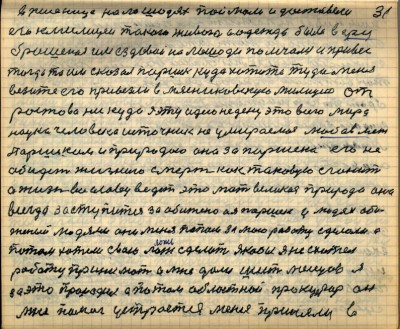 31
в пшенице на лошадях поймали и доставали
его к милиции такого живого а одежда была в еру
брошенная им ездовой на лошади помчали и привез
тогда то им сказал паршек куда хотите туда меня
везите его привезли в мянчиковскую милицию от
ростова никуда я эту идею не дену это всего мира
наука человека источник не умираемая любав мать
Паршеком и природою она за паршека его не
обидит жизнию смерть как таковую сгонить
а жизнь во славу ведет это мать великая природа она
всегда заступится за обижено ая паршек у людях оби
жений людями они меня попам за мою работу сделали а
потом хотели свою ложь сделать якобы я не схотел
ложь
работу принемать а мне дали шесть месяцов я
за это просидел а потом областной прокурор он
мне помог устраетса меня приняли в